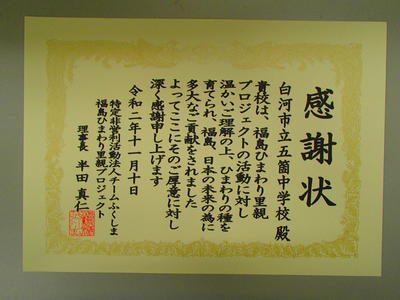 感謝状
白河市立五箇中学校 殿
貴校は、福島ひまわり里親
プロジェクトの活動に対し
温かいご理解の上、ひまわりの種を
育てられ、福島、日本の未来の為に
多大なご貢献をされました
よってここにそのご厚意に対し
深く感謝申し上げます
令和二年十一月十日
特定非営利活動法人チームふくしま
福島ひまわり里親プロジェクト
理事長 半田 真仁